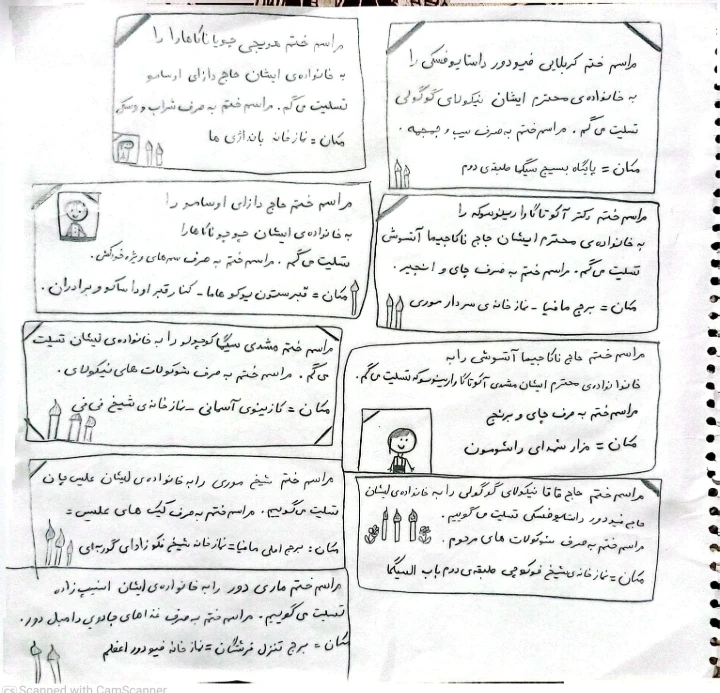 مراسم ختم کربلایی فیودور داستایوفسکی را
به خانواده‌ی محترم ایشان نیکولای گوگولی
تسلیت می‌گم. مراسم ختم به صرف سیب و جمجمه.
مکان = پایگاه بسیج سیگما طبقه‌ی دوم
مراسم ختم چویا ناکاهارا را
به خانواده‌ی ایشان حاج دازای اوسامو
تسلیت می‌گم. مراسم ختم به صرف شراب و ویسکی
مکان = نمازخانه بانداژی ها
مراسم ختم دکتر آکوتاگاوا ریونوسوکه را
به خانواده‌ی محترم ایشان حاج ناکاجیما آتسوشی
تسلیت می‌گم. مراسم ختم به صرف چای و انجیر.
مکان = برج مافیا - نمازخانه‌ی سردار موری
مراسم ختم حاج دازای اوسامو را
به خانواده‌ی ایشان چویو ناکاهارا
تسلیت می‌گم. مراسم ختم به صرف سم‌های ویژه خودکشی.
مکان = قبرستون یوکوهاما - کنار قبر اوداساکو و برادران.
مراسم ختم حاج ناکاجیما آتسوشی را به
خانواده‌ی محترم ایشان مشدی آکوتاگاوا ریونوسوکه تسلیت می‌گم.
مراسم ختم به صرف چای و برنج
مکان = مزار شهدای راشومون
مراسم ختم مشدی سیگما کوچولو را به خانواده‌ی ایشان تسلیت
می‌گم. مراسم ختم به صرف شوکولات های نیکولای.
مکان = کازینوی آسمانی - نمازخانه‌ی شیخ فی فی
مراسم ختم حاج آقا نیکولای گوگولی را به خانواده‌ی ایشان
حاج فیودور داستایوفسکی تسلیت می‌گوییم.
مراسم ختم به صرف شوکولات های مرحوم.
مکان = نمازخانه‌ی شیخ فوکوچی طبقه‌ی دوم باب السیگما
مراسم ختم شیخ موری را به خانواده‌ی ایشان علیس جان
تسلیت می‌گوییم. مراسم ختم به صرف کیک های علیس =
مکان: برج اصلی مافیا = نمازخانه شیخ فکوزاوای گربه‌ای
مراسم ختم ماری دور را به خانواده‌ی ایشان اسنیپ زاده
تسلیت می‌گوییم. مراسم ختم به صرف غذاهای جادویی دامبل دور.
مکان = برج تنزل فرشتگان = نمازخانه فیودور اعظم
CS Scanned with CamScanner